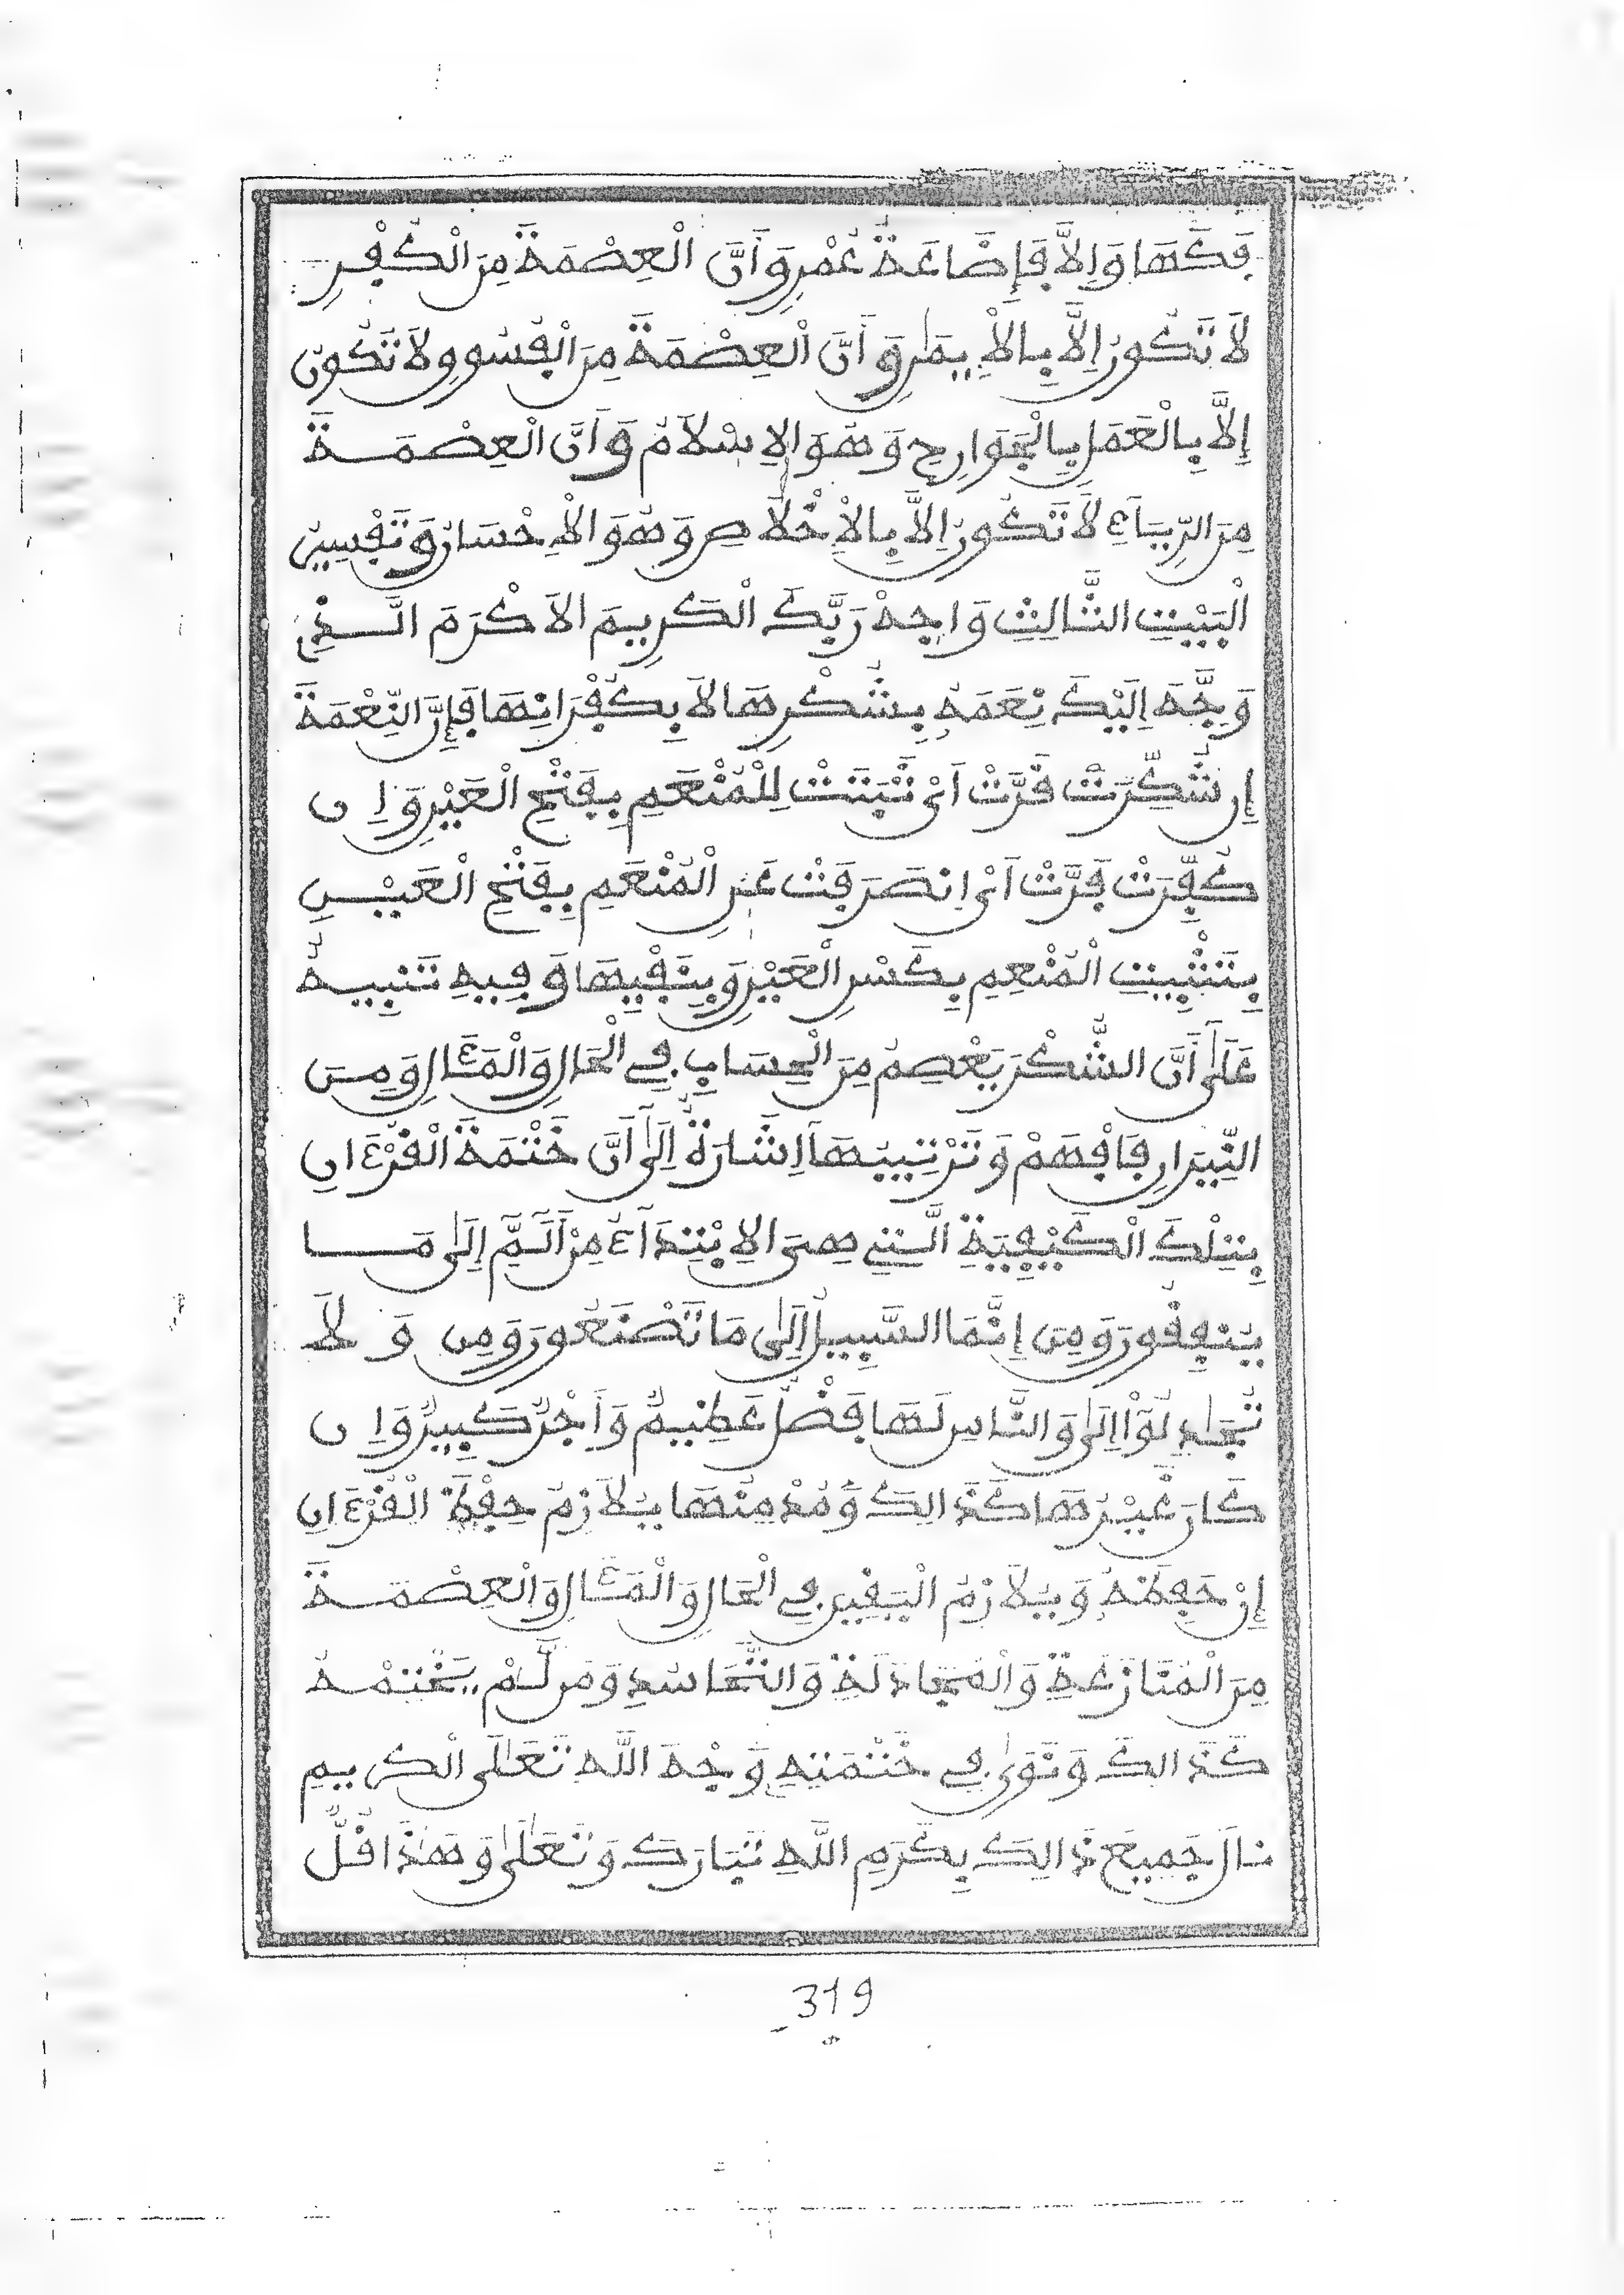 فَكَهَا وَإِلاَّ فَإِضَاعَةُ عُمْرٍ وَأَنَّ الْعِصْمَةَ مِنَ الْكُفْرِ
لاَ تَكُونُ إِلاَّ بِالْإِيمَٰنِ وَأَنَّ الْعِصْمَةَ مِنَ الْفُسُوقِ لاَ تَكُونُ
إِلاَّ بِالْعَمَلِ بِالْجَوَارِحِ وَهُوَ الإِسْلاَمُ وَأَنَّ الْعِصْمَةَ
مِنَ الرِّيَآءِ لاَ تَكُونُ إِلاَّ بِالْإِخْلاَصِ وَهُوَ الْإِحْسَانُ وَتَفْسِيرُ
الْبَيْتِ الثَّالِثِ وَاجِهْ رَبَّكَ الْكَرِيمَ الاَكْرَمَ الَّذِي
وَجَّهَ إِلَيْكَ نِعَمَهُ بِشُكْرِهَا لاَ بِكُفْرَانِهَا فَإِنَّ النِّعْمَةَ
إِن شُكِرَتْ قَرَّتْ أَيْ ثَبَتَتْ لِلْمُنْعَمِ بِفَتْحِ الْعَيْنِ وَإِن
كُفِرَتْ فَرَّتْ أَيْ انصَرَفَتْ عَنِ الْمُنْعَمِ بِفَتْحِ الْعَيْنِ
بِتَثْبِيتِ الْمُنْعِمِ بِكَسْرِ الْعَيْنِ وَبِنَفْيِهَا وَفِيهِ تَنْبِيهٌ
عَلَىٰ أَنَّ الشُّكْرَ يَعْصِمُ مِنَ الْحِسَابِ فِي الْحَالِ وَالْمَئَالِ وَمِنَ
النِّيرَانِ فَافْهَمْ وَتَرْتِيبُهَا إِشَارَةٌ إِلَىٰ أَنَّ خَتْمَةَ الْقُرْءَانِ
بِتِلْكَ الْكَيْفِيَةِ الَّتِي هِىَ الاِبْتِدَآءُ مِنْ أَلَمِّ إِلَىٰ مَا
يُنفِقُونَ وَمِنِ إِنَّمَا السَّبِيلُ إِلَىٰ مَا تَصْنَعُونَ وَمِن وَلاَ
تُجَٰدِلُوٓاْ إِلَىٰ وَالنَّاسِ لَهَا فَضْلٌ عَظِيمٌ وَأَجْرٌ كَبِيرٌ وَإِن
كَانَ غَيْرُهَا كَذَالِكَ وَمُدْمِنُهَا يُلاَزِمُ حِفْظَ الْقُرْءَانِ
إِنْ حَفِظَهُ وَيُلاَزِمُ الْيَقِينَ فِي الْحَالِ وَالْمَئَالِ وَالْعِصْمَةَ
مِنَ الْمُنَازَعَةِ وَالْمُجَادَلَةِ وَالتَّحَاسُدِ وَمَن لَّمْ يَخْتِمْهُ
كَذَالِكَ وَنَوَىٰ فِي خَتْمَتِهِ وَجْهَ اللَّهِ تَعَالَىٰ الْكَرِيمِ
نَالَ جَمِيعَ ذَالِكَ بِكَرَمِ اللَّهِ تَبَارَكَ وَتَعَالَىٰ وَهَٰذَا قُلْ
319